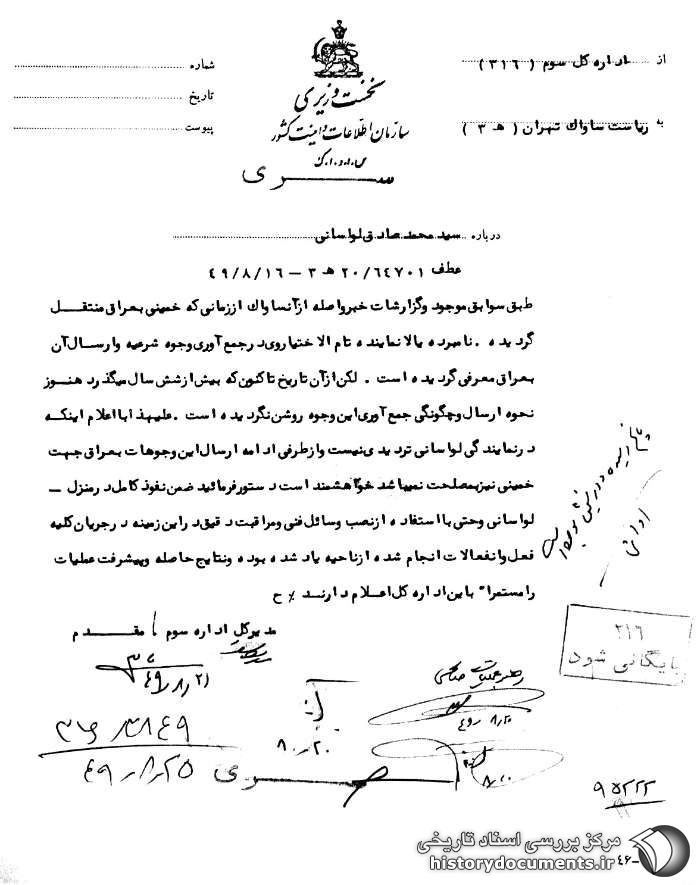 از اداره کل سوم ( ۳۱۶ )
به ریاست ساواک تهران ( هـ ۳ )
نخست وزیری
سازمان اطلاعات و امنیت کشور
س.ا.و.ا.ک
شماره
تاریخ
پیوست
سری
درباره سید محمد صادق لواسانی
عطف ۲۰/۶۴۷۰۱ هـ ۳ – ۴۹/۸/۱۶
طبق سوابق موجود و گزارشات خبر واصله از آنساواک از زمانی که خمینی بعراق منتقل
گردیده . نامبرده بالا نماینده تام الاختیار وی در جمع آوری وجوه شرعیه و ارسال آن
بعراق معرفی گردیده است . لکن از آن تاریخ تاکنون که بیش از شش سال میگذرد هنوز
نحوه ارسال و چگونگی جمع آوری این وجوه روشن نگردیده است . علیهذا با اعلام اینکه
در نمایندگی لواسانی تردیدی نیست و از طرفی ادامه ارسال این وجوهات بعراق جهت
خمینی نیز بمصلحت نمیباشد خواهشمند است دستور فرمائید ضمن نفوذ کامل در منزل –
لواسانی و حتی با استفاده از نصب وسائل فنی و مراقبت دقیق در این زمینه در جریان کلیه
فعل و انفعالات انجام شده از ناحیه یاد شده بوده و نتایج حاصله و پیشرفت عملیات
را مستمرا" باین اداره کل اعلام دارند ٪ ح
مدیر کل اداره سوم . مقدم
۴۹/۸/۲۱
رهبر عملیات صالحی
۴۹/۸/۲۰
۸/۲۰
۴۹/۸/۲۵
سری
۳۱۶
بایگانی شود
۹۵۲۲۲
مرکز بررسی اسناد تاریخی
historydocuments.ir
۴۶-